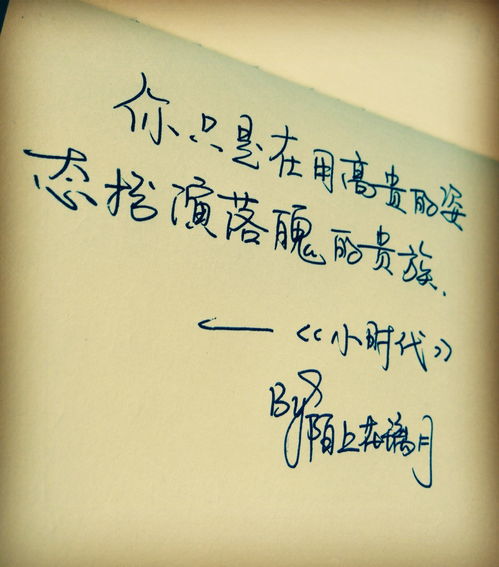 你只是在用高贵的姿
态扮演落魄的贵族.
——《小时代》
By 陌上花